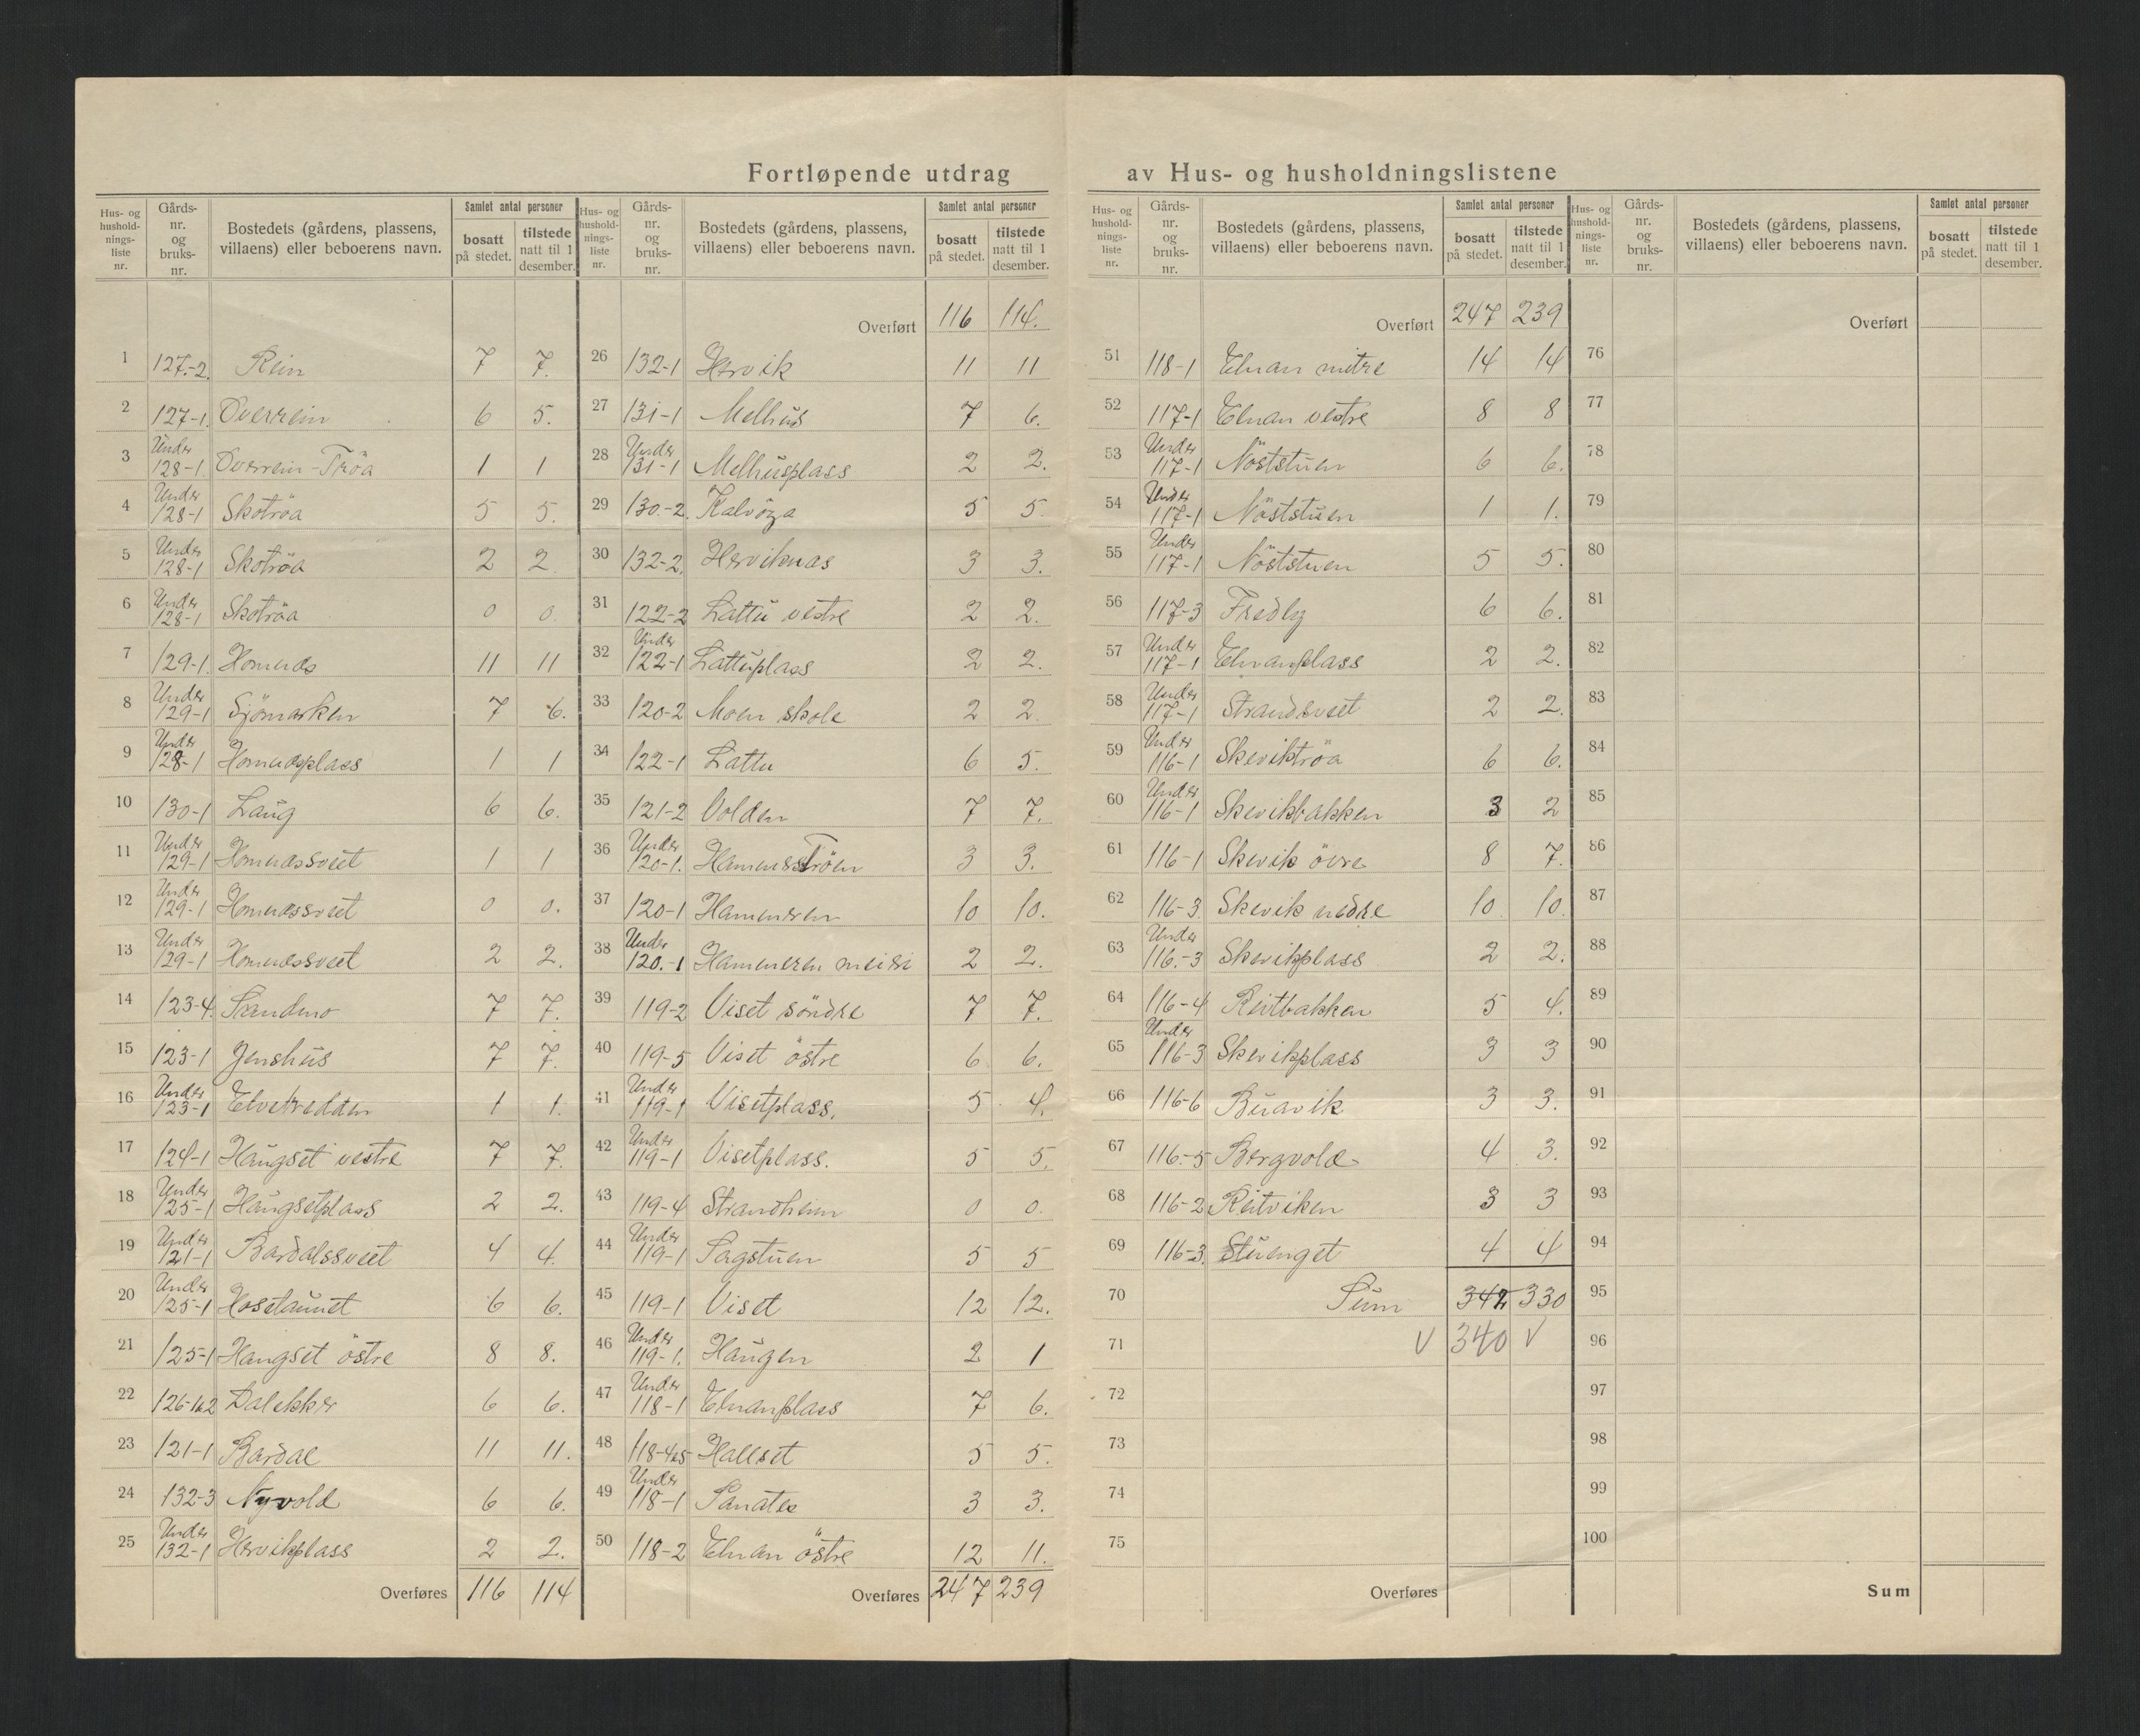 Fortløpende utdrag av Hus- og husholdningslistene
Hus- og hushold-nings-liste nr. Gårds-nr. og bruks-nr. Bostedets (gårdens, plassens, villaens) eller beboerens navn. Samlet antal personer bosatt på stedet. tilstede natt til 1 desember.
1 127.-2. Rein 7 7.
2 127-1. Overrein 6 5.
3 Under 128-1. Overrein-Tröa 1 1
4 Under 128-1 Skotröa 5 5.
5 Under 128-1 Skotröa 2 2
6 Under 128-1 Skotröa 0 0
7 129-1. Homnes 11 11
8 Under 129-1 Sjömarken 7 6.
9 Under 128-1 Homnesplass 1 1
10 130-1 Laug 6 6.
11 Under 129-1 Homnessveet 1 1
12 Under 129-1 Homnessveet 0 0.
13 Under 129-1 Homnessveet 2 2.
14 123-4. Sandmo 7 7.
15 123-1 Jenshus 7 7.
16 Under 123-1 1 1.
17 124-1 Haugset vestre 7 7.
18 Under 125-1 Haugsetplass 2 2.
19 Under 121-1 Bardalssveet 4 4.
20 Under 125-1 Hosetaunet 6 6.
21 125-1 Haugset östre 8 8.
22 126-1&2 Dalekker 6 6.
23 121-1 Bardal 11 11.
24 132-3 Nyvold 6 6.
25 Under 132-1 Hervikplass 2 2.
Overføres 116 114
Hus- og hushold-nings-liste nr. Gårds-nr. og bruks-nr. Bostedets (gårdens, plassens, villaens) eller beboerens navn. Samlet antal personer bosatt på stedet. tilstede natt til 1 desember.
Overført 116 114.
26 132-1 Hervik 11 11
27 131-1 Melhus 7 6.
28 Under 131-1 Melhusplass 2 2.
29 130.-2. Kalvöya 5 5.
30 132-2. Herviknes 3 3.
31 122-2 Lattu vestre 2 2.
32 Under 122-1 Lattuplass 2 2.
33 120-2 Moen skole 2 2.
34 122-1 Lattu 6 5.
35 121-2 Volden 7 7.
36 Under 120-1. Hammerströen 3 3.
37 120-1 Hammeren 10 10.
38 Under 120.-1 Hammeren meieri 2 2.
39 119-2 Viset söndre 7 7.
40 119-5 Viset östre 6 6.
41 Under 119-1 Visetplass. 5 4.
42 Under 119-1 Visetplass. 5 5.
43 119-4 Strandheim 0 0.
44 Under 119-1 Sagstuen 5 5
45 119-1 Viset 12 12.
46 Under 119-1. Haugen 2 1
47 Under 118-1 Elnanplass 7 6.
48 118-4&5 Hallset 5 5.
49 Under 118-1 3 3.
50 118-2 Elnan östre 12 11.
Overføres 247 239
Hus- og hushold-nings-liste nr. Gårds-nr. og bruks-nr. Bostedets (gårdens, plassens, villaens) eller beboerens navn. Samlet antal personer bosatt på stedet. tilstede natt til 1 desember.
Overført 247 239
51 118-1 Elnan mitre 14 14
52 117-1 Elnan vestre 8 8
53 Under 117-1 Nöststuen 6 6.
54 Under 117-1 Nöststuen 1 1.
55 Under 117-1 Nöststuen 5 5.
56 117-3 Fredly 6 6.
57 Under 117-1 Elnanplass 2 2.
58 Under 117-1 Strandsveet 2 2.
59 Under 116-1 Skeviktröa 6 6.
60 Under 116-1 Skevikbakken 3 2
61 116-1 Skevik övre 8 7.
62 116-3. Skevik nedre 10 10.
63 Under 116.-3 Skevikplass 2 2.
64 116-4 Reitbakken 5 4.
65 Under 116-3 Skevikplass 3 3
66 116-6 Buavik 3 3.
67 116.-5 Bergvold 4 3.
68 116-2 Reitviken 3 3
69 116-3. Stuenget 4 4
70 Sum 342 330
71 V 340 V
72
73
74
75
Overføres
Hus- og hushold-nings-liste nr. Gårds-nr. og bruks-nr. Bostedets (gårdens, plassens, villaens) eller beboerens navn. Samlet antal personer bosatt på stedet. tilstede natt til 1 desember.
Overført
76
77
78
79
80
81
82
83
84
85
86
87
88
89
90
91
92
93
94
95
96
97
98
99
100
Sum